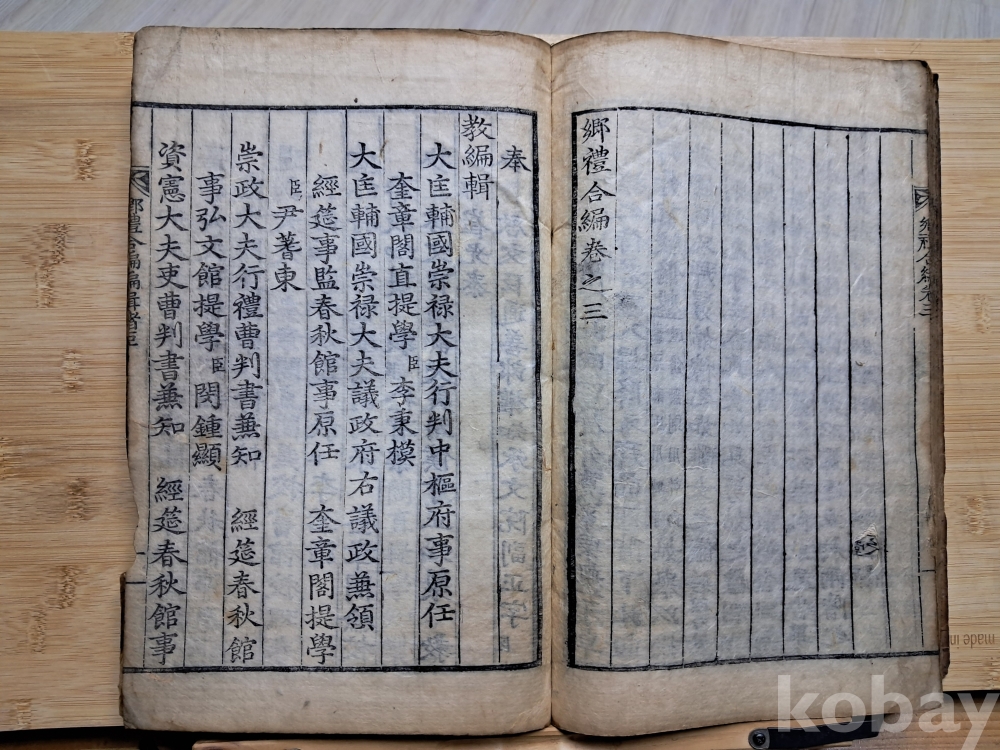 鄕禮合編卷之三
奉
教編輯
大匡輔國崇禄大夫行判中樞府事原任
奎章閣直提學臣李秉模
大匡輔國崇禄大夫議政府右議政兼領
經筵事監春秋館事原任 奎章閣提學
臣尹蓍東
崇政大夫行禮曹判書兼知 經筵春秋館
事弘文館提學臣閔鍾顯
資憲大夫吏曹判書兼知 經筵春秋館事
鄕禮合編編輯諸臣
一
made in
kobay